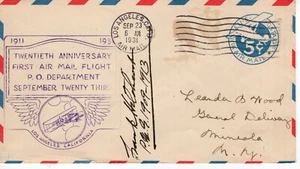 1911 193
TWENTIETH ANNIVERSARY
FIRST AIR MAIL FLIGHT
P.O. DEPARTMENT
SEPTEMBER TWENTY THIRD
LOS ANGELES CALIFORNIA
LOS ANGELES, CALIF.
SEP 23
6 AM
1931
AIR MAIL
5¢
AIR MAIL
Leander B Wood
General Delivery
Mineola
N. Y.